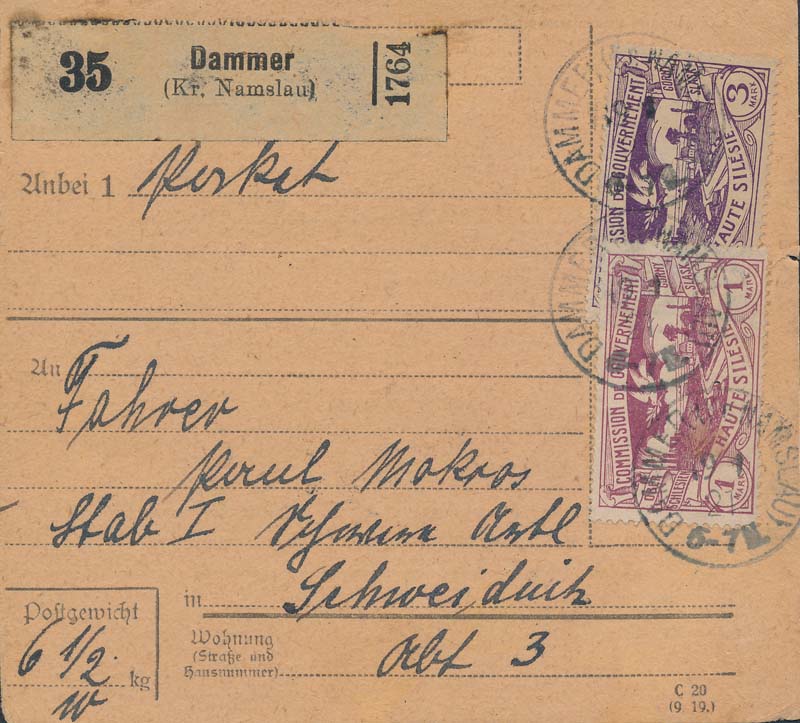 35
Dammer
(Kr. Namslau)
1764
Anbei 1 Perket
An
Fahrer
Paul Mokros
Stab I Schwere Artl
in Schweidnitz
Wohnung
(Straße und
Hausnummer)
Abt 3
Postgewicht
6 1/2
kg
C 20
(9. 19.)
COMMISSION DE GOUVERNEMENT
HAUTE SILESIE
GORNY
ŚLĄSK
3
MARK
COMMISSION DE GOUVERNEMENT
HAUTE SILESIE
GORNY
ŚLĄSK
OBER
SCHLESIEN
1
MARK
1
MARK
DAMMER
DAMMER
DAMMER NAMSLAU)
6-7N.